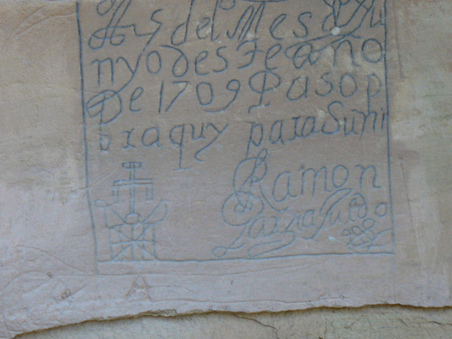 A 25 del Mes de Ju
nyo desTe año
De 1709 Paso p
or aquy para Suñi
Ramon
Garzia Jurado